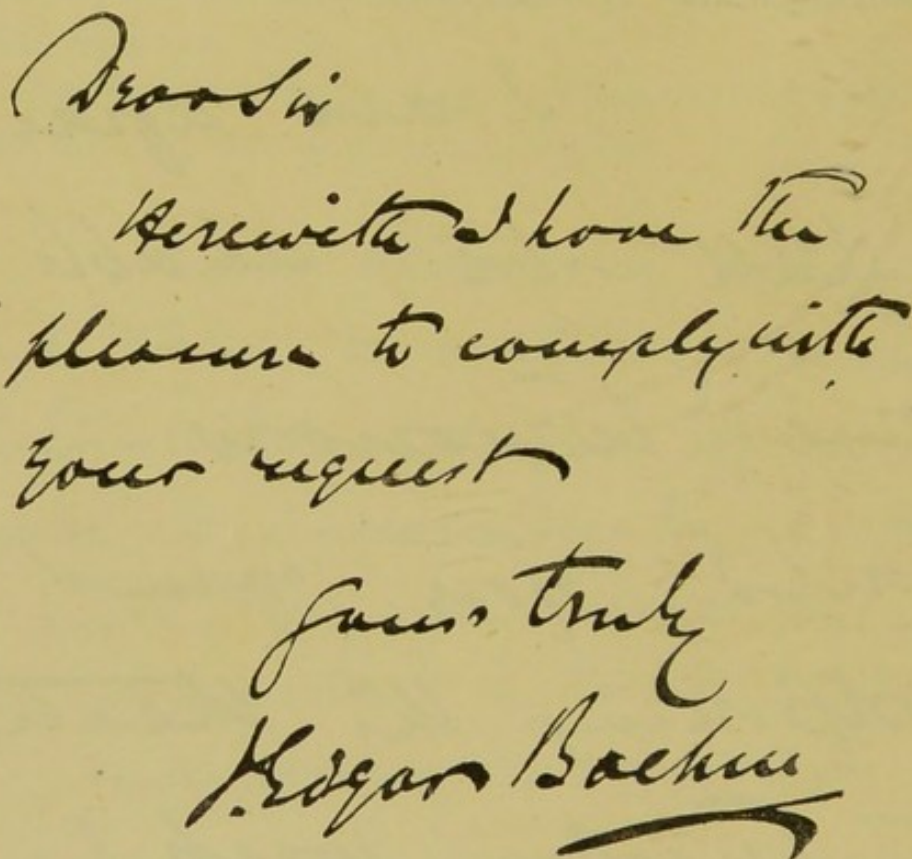 Dear Sir
Herewith I have the
pleasure to comply with
your request
Yours truly
J. Edgar Boehm